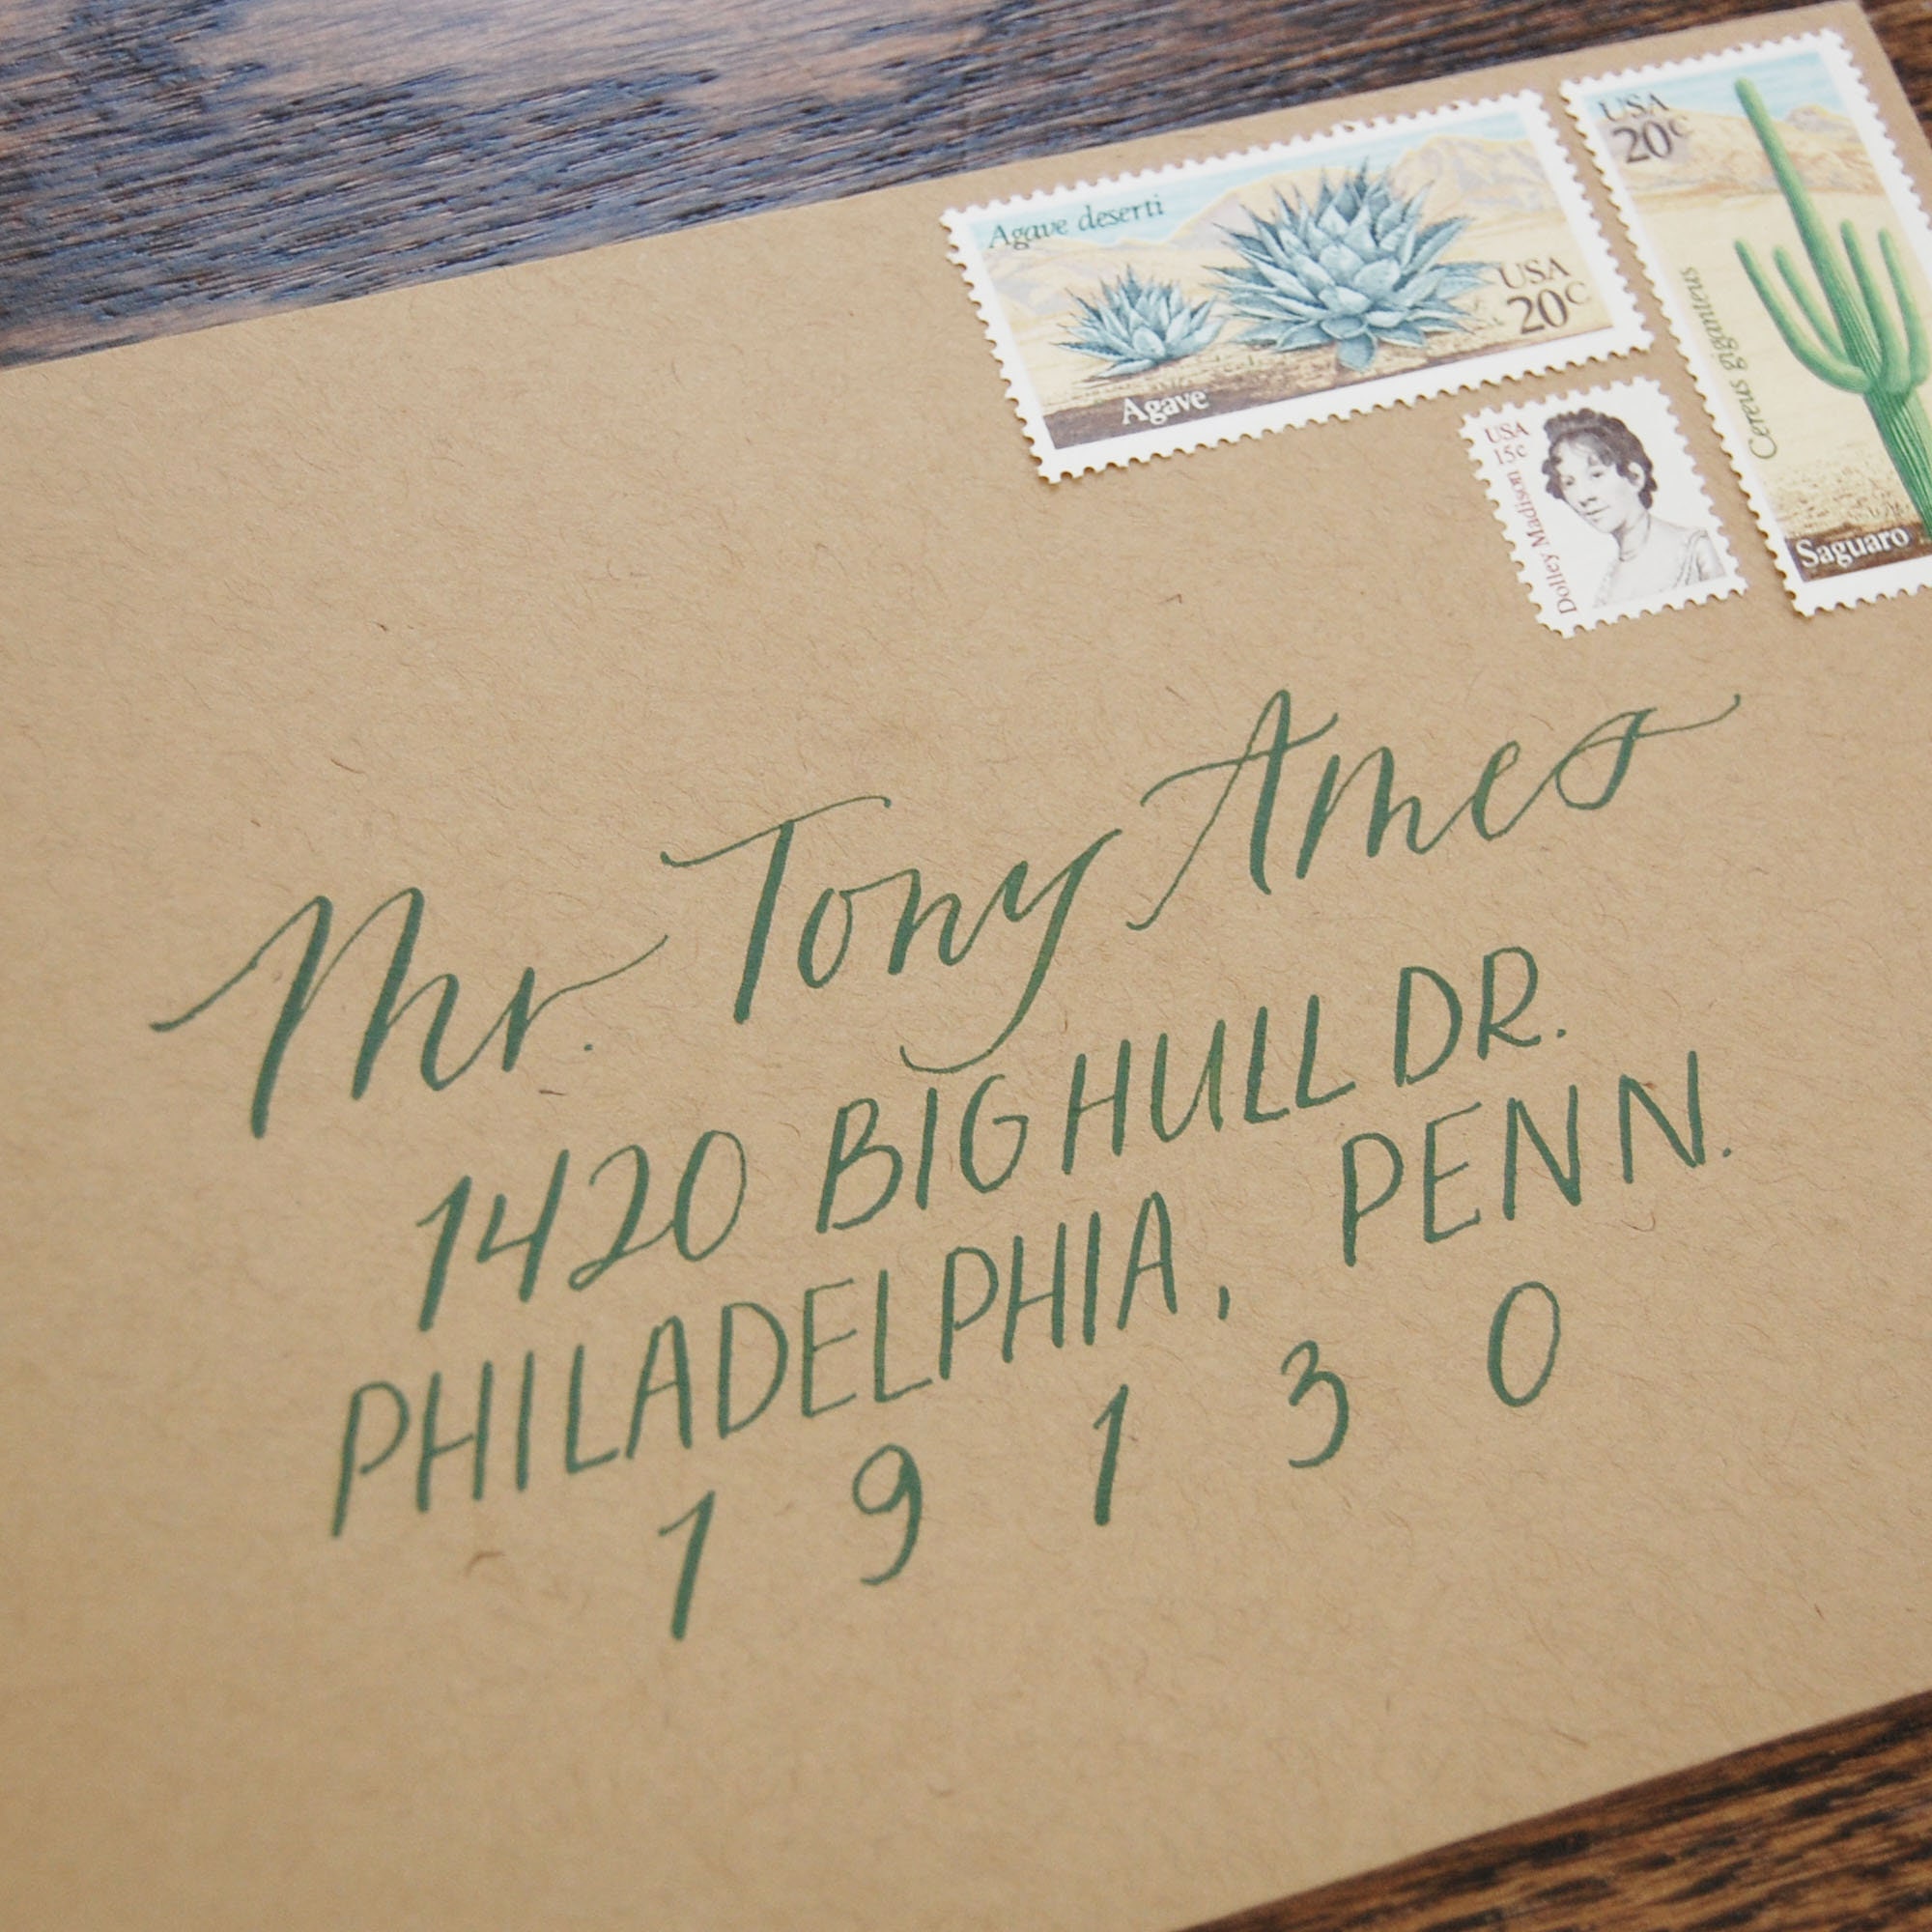 Agave deserti
USA
20c
Agave
USA
20c
Cereus giganteus
Saguaro
USA
15c
Dolley Madison
Mr. Tony Ames
1420 BIG HULL DR.
PHILADELPHIA, PENN.
1 9 1 3 0